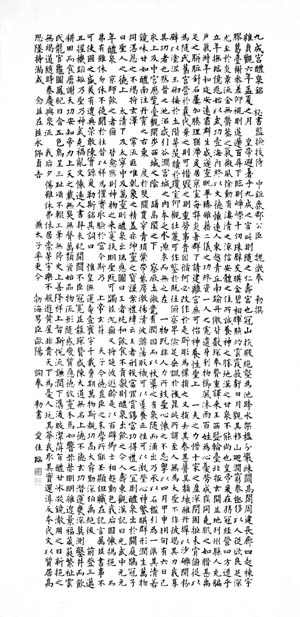 九成宮醴泉銘 祕書監檢校侍中鉅鹿郡公臣魏徵奉勅撰
維貞觀六年孟夏之月皇帝避暑乎九成之宮此則隨之仁壽宮也冠山抗殿絕壑為池跨水架楹分巖竦闕高閣周建長廊四起棟宇
膠葛臺榭參差仰視則迢遰百尋下臨則崢嶸千仞珠璧交映金碧相暉照灼雲霞蔽虧日月觀其移山迴澗窮泰極侈以人從欲良足深
尤至於炎景流金無鬱蒸之氣微風徐動有淒清之涼信安體之佳所誠養神之勝地漢之甘泉不能尚也皇帝爰在弱冠經營四方逮乎
立年撫臨億兆始以武功壹海內終以文德懷遠人東越青丘南踰丹徼皆獻琛奉贄重譯來王西暨輪臺北拒玄闕並地列州縣人充編
戶氣淑年和邇安遠肅群生咸遂靈貺畢臻雖藉二儀之功終資一人之慮遺身利物櫛風沐雨百姓為心憂勞成疾同堯肌之如腊甚禹
足之胼胝針石屢加腠理猶滯爰居京室每弊炎暑群下請建離宮庶可怡神養性聖上愛一夫之力惜十家之產深閉固拒未肯俯從以
為隨氏舊宮營於曩代棄之則可惜毀之則重勞事貴因循何必改作於是斲彫為樸損之又損去其泰甚葺其頹壞雜丹墀以沙礫間粉
壁以塗泥玉砌接於土階茅茨續於瓊室仰觀壯麗可作鑒於既往俯察卑儉足垂訓於後昆此所謂至人無為大聖不作彼竭其力我享
其功者也然昔之池沼咸引谷澗宮城之內本乏水源求而無之在乎一物既非人力所致聖心懷之不忘粵以四月甲申朔旬有六日己
亥上及中宮歷覽臺觀閑步西城之陰躊躇高閣之下俯察厥土微覺有潤因而以杖導之有泉隨而涌出乃承以石檻引為一渠其清若
鏡味甘如醴南注丹霄之右東流度於雙闕貫穿青瑣縈帶紫房激揚清波滌蕩瑕穢可以導養正性可以澂瑩心神鑒映群形潤生萬物
同湛恩之不竭將玄澤之常流匪唯乾象之精蓋亦坤靈之寶謹案禮緯云王者刑殺當罪賞錫當功得禮之宜則醴泉出於闕庭鶡冠子
曰聖人之德上及太清下及太寧中及萬靈則醴泉出瑞應圖曰王者純和飲食不貢獻則醴泉出飲之令人壽東觀漢記曰光武中元元
年醴泉出京師飲之者痼疾皆愈然則神物之來寔扶明聖既可蠲茲沉痼又將延彼遐齡是以百辟卿士相趨動色我后固懷撝挹推而
弗有雖休勿休不徒聞於往昔以祥為懼實取驗於當今斯乃上帝玄符天子令德豈臣之末學所能丕顯但職在記言屬茲書事不
可使國之盛美有遺典策敢陳實錄爰勒斯銘其詞曰惟皇撫運奄壹寰宇千載膺期萬物斯覩功高大舜勤深伯禹絕後光前登三邁
五握機蹈矩乃聖乃神武克禍亂文懷遠人書契未紀開闢不臣冠冕並襲琛贄咸陳大道無名上德不德玄功潛運幾深莫測鑿井而飲
耕田而食靡謝天功安知帝力上天之載無臭無聲萬類資始品物流形隨感變質應德效靈介焉如響赫赫明明雜遝景福葳蕤繁祉雲
氏龍官龜圖鳳紀日含五色烏呈三趾頌不輟工筆無停史上善降祥上智斯悅流謙潤下潺湲皎潔蓱旨醴甘冰凝鏡澈用之日新挹之
無竭道隨時泰慶與泉流我后夕惕雖休弗休居崇茅宇樂不般遊黃屋非貴天下為憂人玩其華我取其實還淳反本代文以質居高
思墜持滿戒溢念茲在茲永保貞吉
兼太子率更令勃海男臣歐陽詢奉勅書